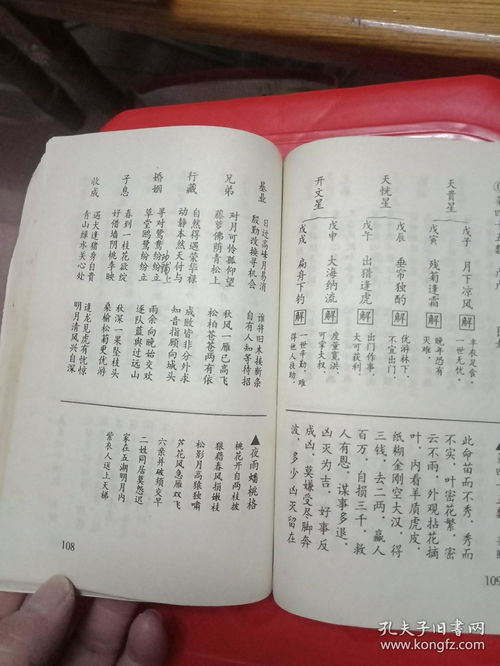 基业
日过高峰月易消
殷勤改换寻机会
谁将旧木接新条
自有人知等待招
兄弟
对月可怜孤仰望
藤萝佛荫青松上
秋风一雁已高飞
松柏苍苍两有依
行藏
自然得遇荣华禄
动静本然天付与
成败皆非分外求
知音指顾向城头
婚姻
寻对鸳鸯
草堂鸥鹭纷纷立
雨余向晚始交欢
逐队蓝舆过远山
子息
春到一枝花欲绽
好借墙阴桃李映
秋深一果坠枝头
桑榆松菊更优游
收成
遇火逢猪身自贵
青山绿水关心处
逢龙见虎有忧惊
明月清风兴自深
▲夜雨蟠桃格
桃花开自两枝披
狼藉春风
松影月高猿独啸
芦花风急雁双飞
六亲并破须交早
二姓同居莫怨迟
家在五湖明月内
紫衣人送上天梯
108
天贵星
戊子 月下凉风 解 丰衣足食,一世无忧。
戊寅 残菊逢霜 解 晚年恐有灾难。
天恍星
戊辰 垂帘独酌 解 优游林下,不宜出门。
戊午 出猎逢虎 解 出门作事,大可获利。
开文星
戊申 大海纳流 解 度量宽洪,可掌大权。
戊戌 扁舟下钓 解 一世辛勤,难得贵人扶助。
此命苗而不秀,秀而
不实,叶密花繁,密
云不雨,外观拈花摘
叶,内看羊质虎皮,
纸糊金刚空大汉,得
三钱,去二两,赢人
百万,自损三千,救
人有恩,谋事多退,
凶灭为吉,好事反
成凶,莫嫌受尽脚奔
波,多少凶灭留在
109
孔夫子旧书网
www.kongfz.com